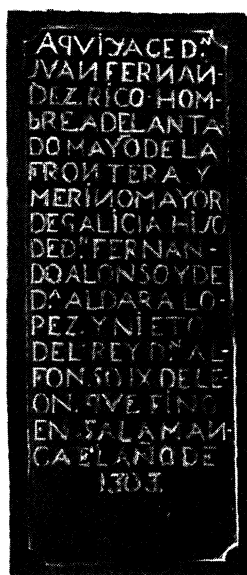 AQVI YACE Dⁿ.
JVAN FERNAN-
DEZ. RICO-HOM-
bRE ADELANTA-
DO MAYO DE LA
FRONTERA Y
MERINO MAYOR
DE GALICIA HIJO
DE Dⁿ. FERNAN-
DO ALONSO Y DE
Dᴬ ALDARA LO-
PEZ. Y NIETO
DEL REY Dⁿ. AL-
FON.SO IX DE LE-
ON. QVE FINO
EN. SALAMAN-
CA EL AÑO DE
1303.